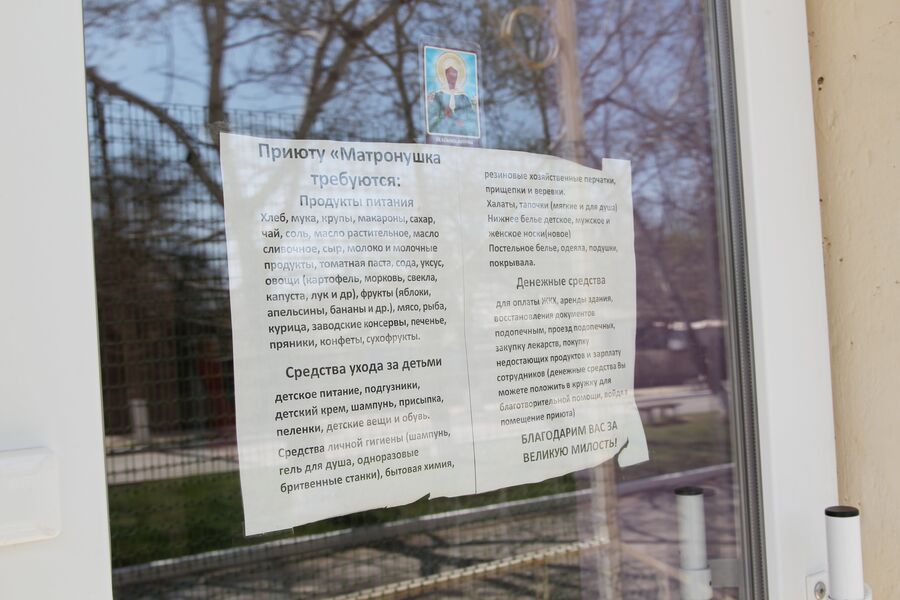 Приюту «Матронушка
требуются:
Продукты питания
Хлеб, мука, крупы, макароны, сахар,
чай, соль, масло растительное, масло
сливочное, сыр, молоко и молочные
продукты, томатная паста, сода, уксус,
овощи (картофель, морковь, свекла,
капуста, лук и др), фрукты (яблоки,
апельсины, бананы и др.), мясо, рыба,
курица, заводские консервы, печенье,
пряники, конфеты, сухофрукты.
Средства ухода за детьми
детское питание, подгузники,
детский крем, шампунь, присыпка,
пеленки, детские вещи и обувь.
Средства личной гигиены (шампунь,
гель для душа, одноразовые
бритвенные станки), бытовая химия,
резиновые хозяйственные перчатки,
прищепки и веревки.
Халаты, тапочки (мягкие и для душа)
Нижнее белье детское, мужское и
женское носки(новое)
Постельное белье, одеяла, подушки,
покрывала.
Денежные средства
для оплаты ЖКХ, аренды здания,
восстановления документов
подопечным, проезд подопечных,
закупку лекарств, покупку
недостающих продуктов и зарплату
сотрудников (денежные средства Вы
можете положить в кружку для
благотворительной помощи, войдя в
помещение приюта)
БЛАГОДАРИМ ВАС ЗА
ВЕЛИКУЮ МИЛОСТЬ!